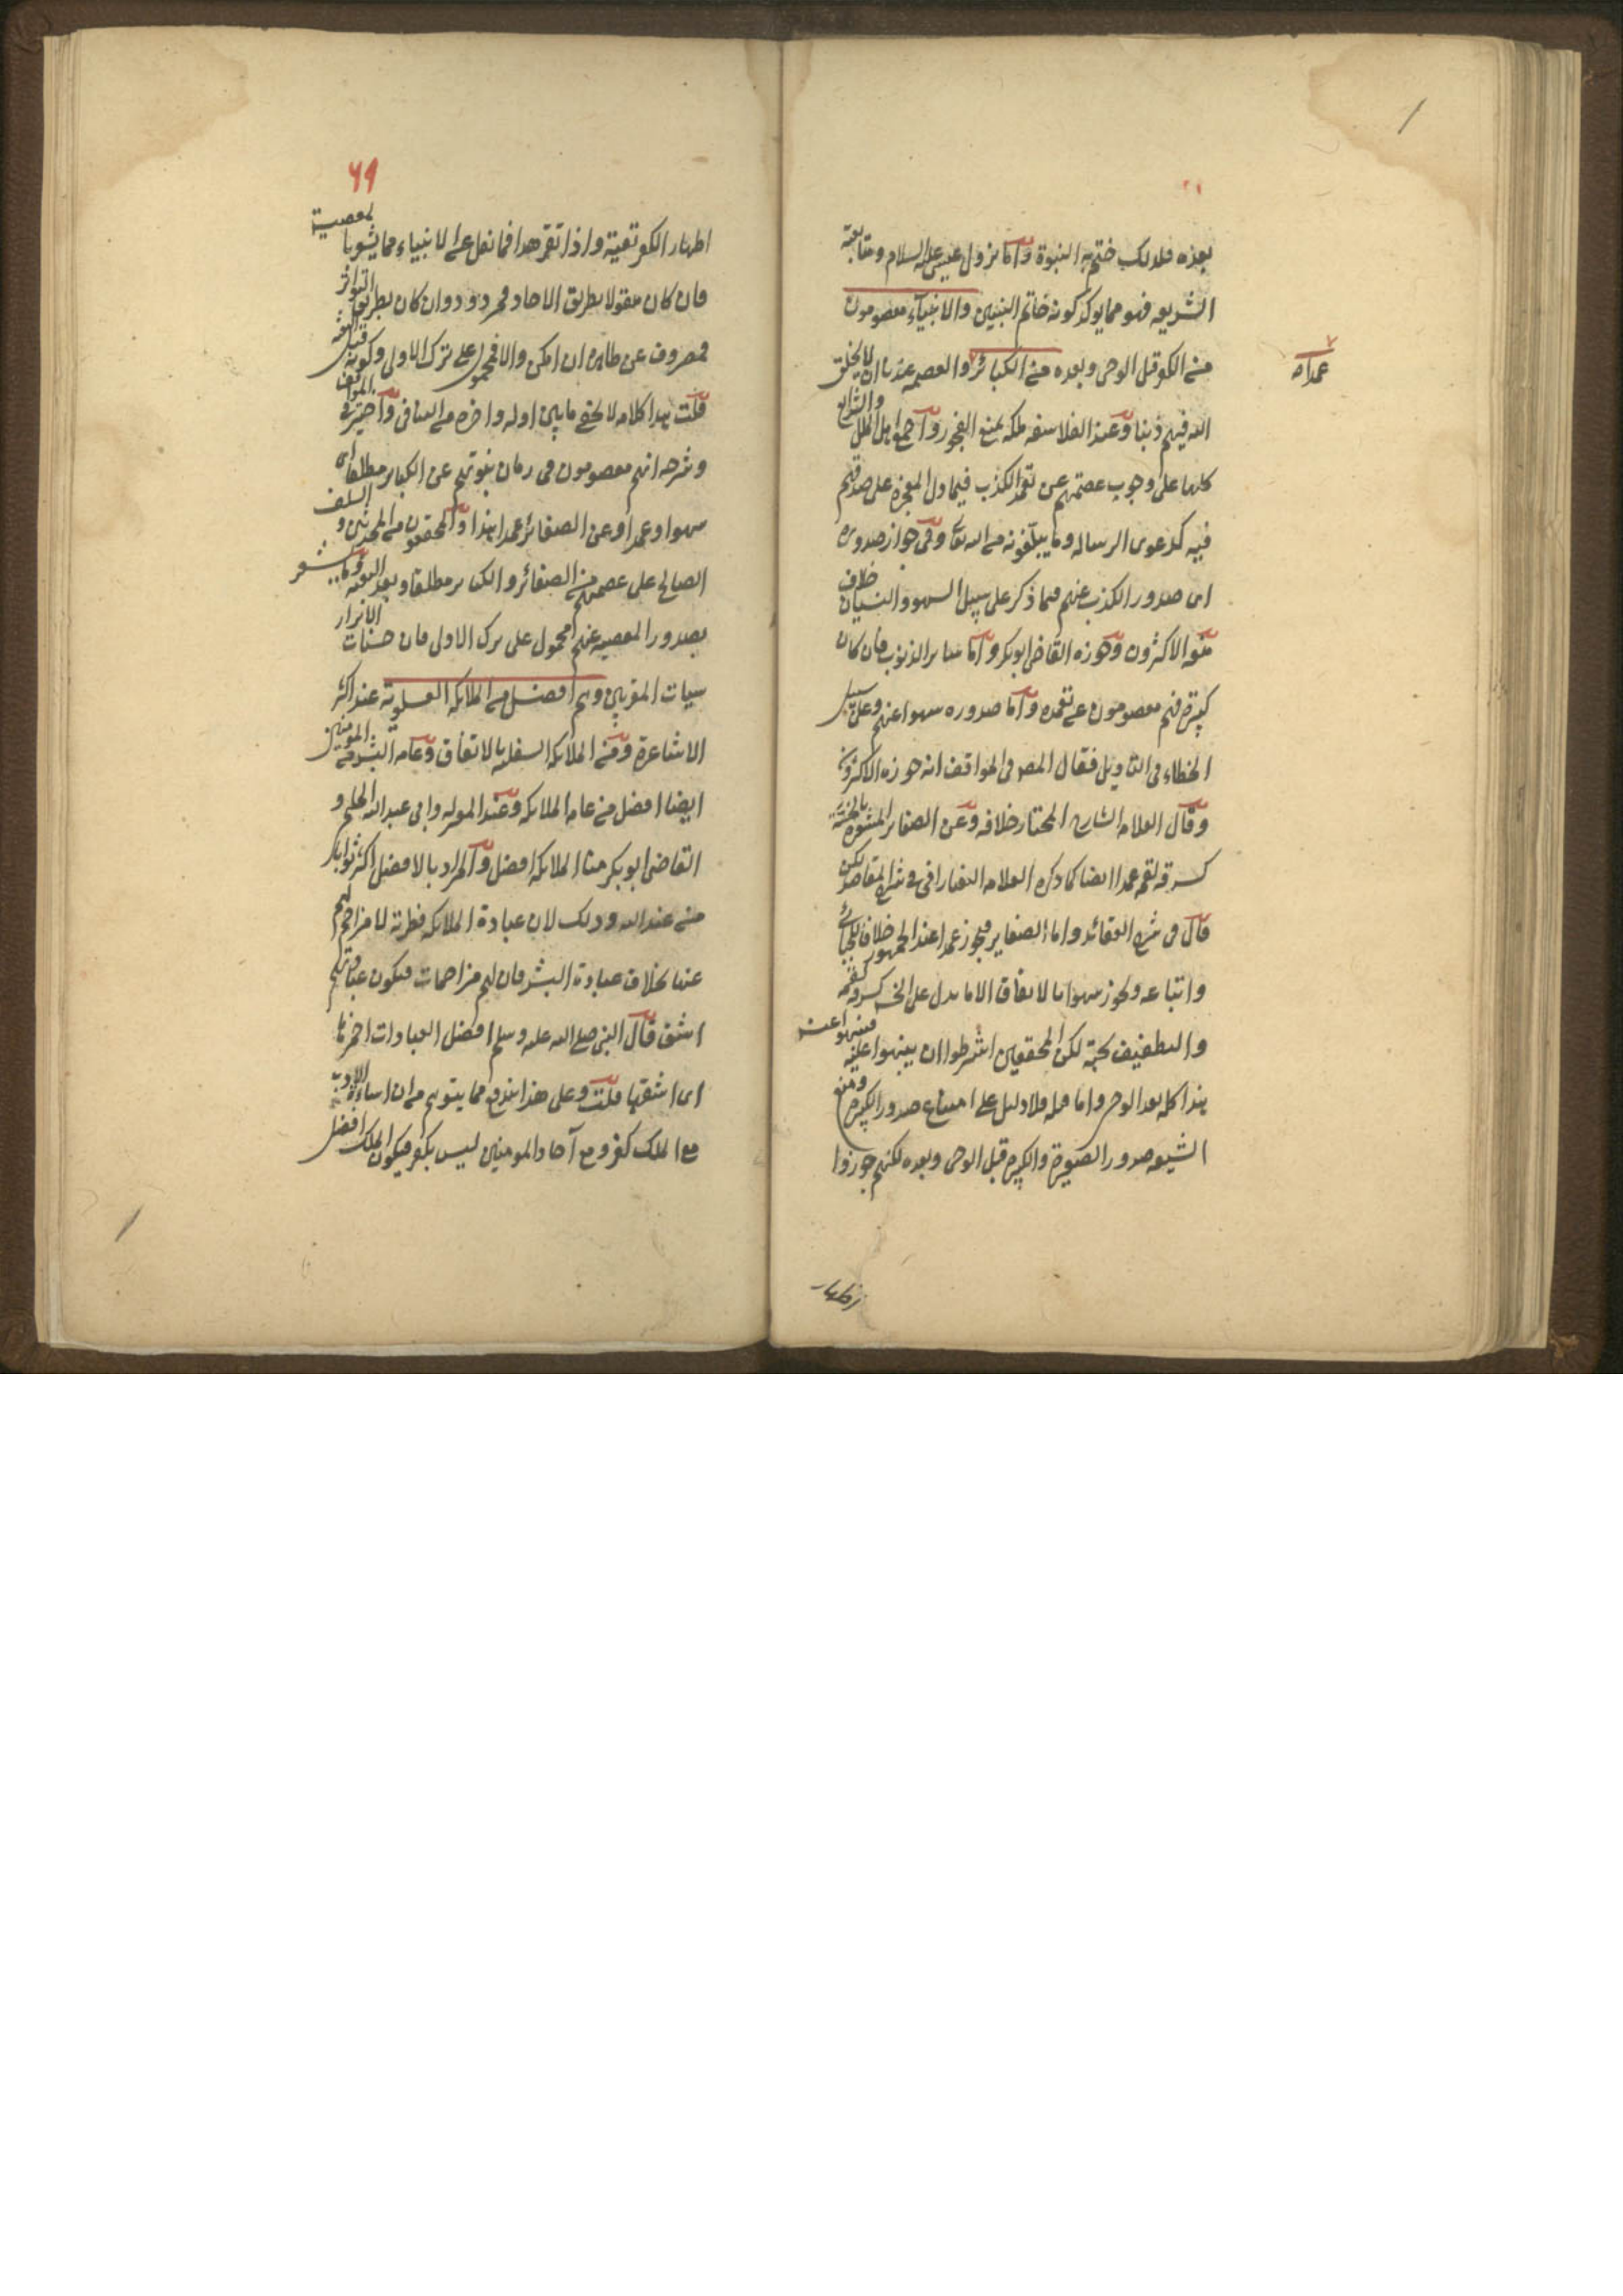 بعده فلذلك ختم به النبوة واما نزول عيسى عليه السلام ومتابعته
الشريعه فهو مما يوكد كونه خاتم النبيين والانبيآء معصومون
من الكفر قبل الوحى وبعده من الكبائر والعصمه عندنا ان لا يخلق
عمدا صح
الله فيهم ذنبا وعند الفلاسفه ملكه يمنع الفجور واجمع اهل الملل والشرايع
كلها على وجوب عصمتهم عن تعمد الكذب فيما دل المعجزه على صدقهم
فيه كدعوى الرساله وما يبلغونه من الله تعالى وفى جواز صدوره
اى صدور الكذب عنهم فيما ذكر على سبيل السهو والنسيان خلاف
منعه الاكثرون وجوزه القاضى ابوبكر واما سائر الذنوب فان كان
كبيرة فهم معصومون عن تعمده واما صدوره سهوا عنهم وعلى سبيل
الخطاء فى التاويل فقال المص فى المواقف انه جوزه الاكثرون
وقال العلامه الشارح المختار خلافه وعن الصغائر المشعره بالخسة
كسرقه لقمه عمدا ايضا كما ذكره العلامه التفتازانى فى شرح المقاصد لكن
قال فى شرح العقائد واما الصغاير فيجوز عمدا عند الجمهور خلافا للجبائى
واتباعه ويجوز سهوا بالاتفاق الا ما يدل على الخسه كسرقه لقمه
والتطفيف بحبة لكن المحققين اشترطوا ان ينبهوا عليه فينتهوا عنه
هذا كله بعد الوحى واما قبله فلا دليل على امتناع صدور الكبيره ومنع
الشيعه صدور الصغيرة والكبيرة قبل الوحى وبعده لكنهم جوزوا
اظهار
٦٩
اظهار الكفر تقية واذا تقرر هذا فما نقل عن الانبياء مما يشعر بالمعصية
فان كان منقولا بطريق الاحاد فمردود وان كان بطريق التواتر
فمصروف عن ظاهره ان امكن والا فمحمول على ترك الاولى وكونه قبل البعثه
قلت هذا كلامه لا يخفى ما بين اوله واخره من التنافى واختير فى المواقف
وشرحه انهم معصومون فى زمان نبوتهم عن الكباير مطلقا اى
سهوا وعمدا وعن الصغائر عمدا هذا والمحققون من المحدثين والسلف
الصالح على عصمتهم من الصغائر والكبائر مطلقا وبعد البعثه وما يشعر
بصدور المعصيه عنهم محمول على ترك الاولى فان حسنات الابرار
سيات المقربين وهم افضل من الملائكه العلويه عند اكثر
الاشاعرة ومن الملائكه السفليه بالاتفاق وعامه البشر من المومنين
ايضا افضل من عامه الملائكه وعند المعتزله وابى عبدالله الحليمى و
القاضى ابو بكر منا الملائكه افضل والمراد بالافضل اكثر ثوابا
من عند الله وذلك لان عبادة الملائكه فطرية لا مزاحم لهم
عنها بخلاف عبادة البشر فان لهم مزاحمات فيكون عبادتهم
اشق قال النبى صلى الله عليه وسلم افضل العبادات احمزها
اى اشقها قلت وعلى هذا يندفع مما يتوهم من ان اساءة الادب
مع الملك كفر ومع آحاد المومنين ليس بكفر فيكون الملك افضل